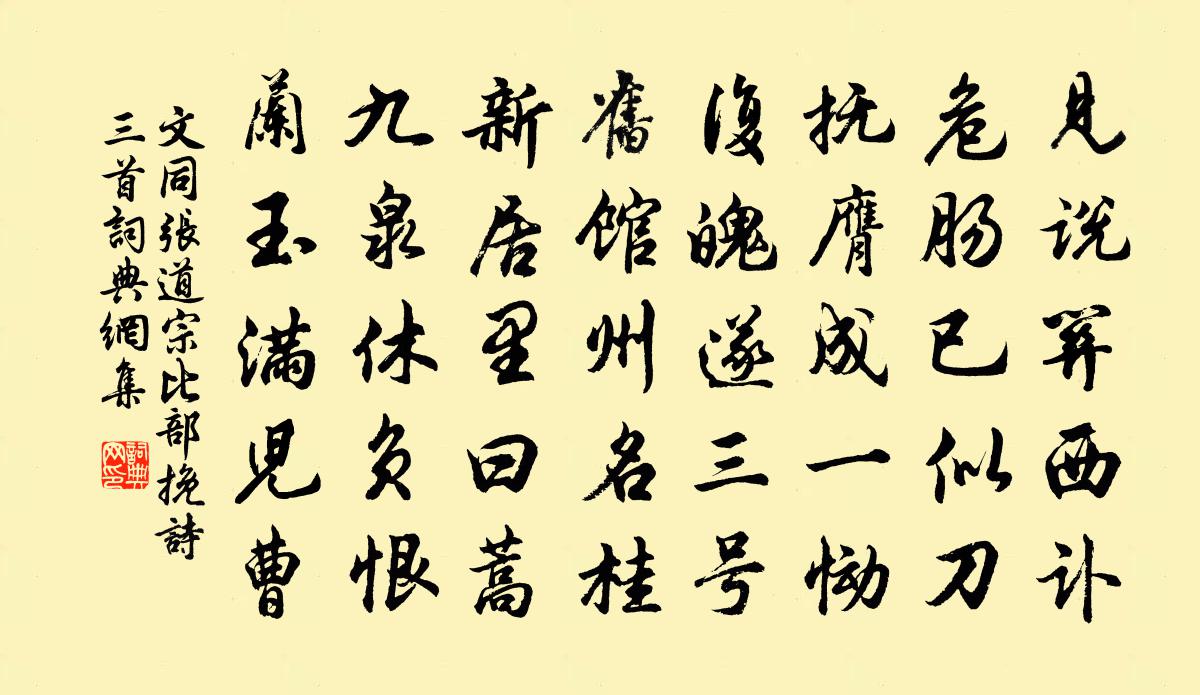 見说開西讣
危肠已似刀
抚膺成一恸
復魄遂三号
舊馆州名桂
新居里曰蒿
九泉休负恨
蘭玉满児曹
文同張道宗比部挽詩
三首詞典網集
詞典网印